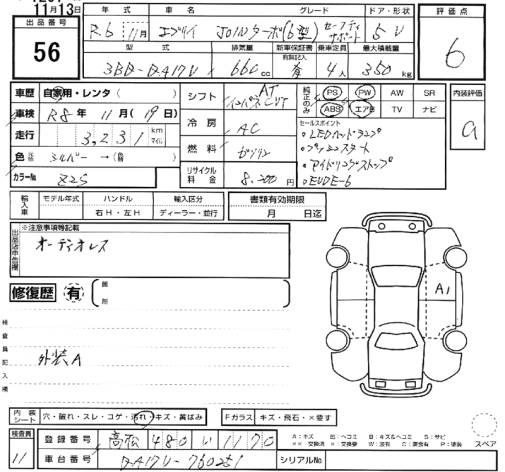 11月13日
出品番号
56
年式 車名 グレード ドア・形状
R.6 11月 エブリイ JOINターボ(6型) セーフティサポート 5 V
型式 排気量 新車保証書 乗車定員 最大積載量
有無記入
3BD-DA17V 660cc 有 4人 350kg
評価点
6
車歴 自家用・レンタ( )
車検 R8年 11月(19日)
走行 3,231 km マイル
色 シルバー →
カラーNo Z2S
シフト AT インパネCVT
冷房 AC
燃料 ガソリン
リサイクル料金 8,200円
純正のみ PS PW AW SR
ABS エアB TV ナビ
内装評価
a
セールスポイント
・LEDヘッドランプ
・プッシュスタート
・アイドリングストップ
・EVDE-6
輸入車 モデル年式 ハンドル 輸入区分
右H・左H ディーラー・並行
書類有効期限
月 日迄
※注意事項等記載
オーディオレス
修復歴 有
検査員記入欄
外装A
A1
内装シート 穴・破れ・スレ・コゲ・汚れ・キズ・黄ばみ
Fガラス キズ・飛石・×要す
検査員
11
登録番号 高松 480 い 1170
車台番号 DA17V-760251
シリアルNo
A:キズ U:ヘコミ B:キズ&ヘコミ S:サビ
スペア